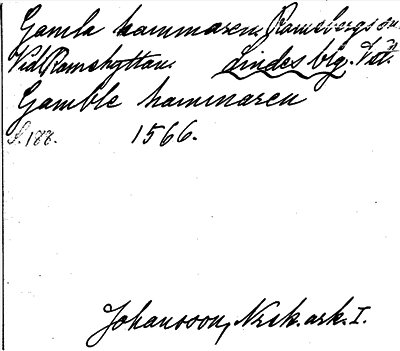 Gamla hammaren. Ramsbergs sn.
Vid Ramshyttan. Lindes blg. Vstm.
Gamble hammaren
S. 188. 1566.
Johansson, Nrsk. ark. I.